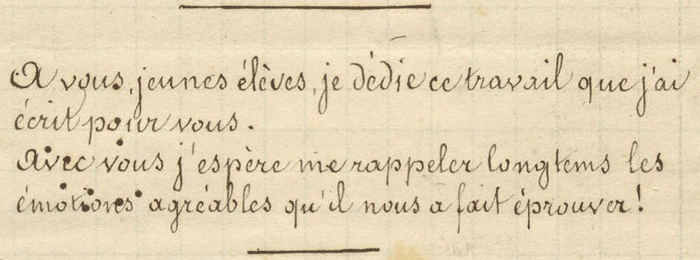 A vous, jeunes élèves, je dédie ce travail que j'ai
écrit pour vous.
Avec vous j'espère me rappeler longtems les
émotions agréables qu'il nous a fait éprouver!